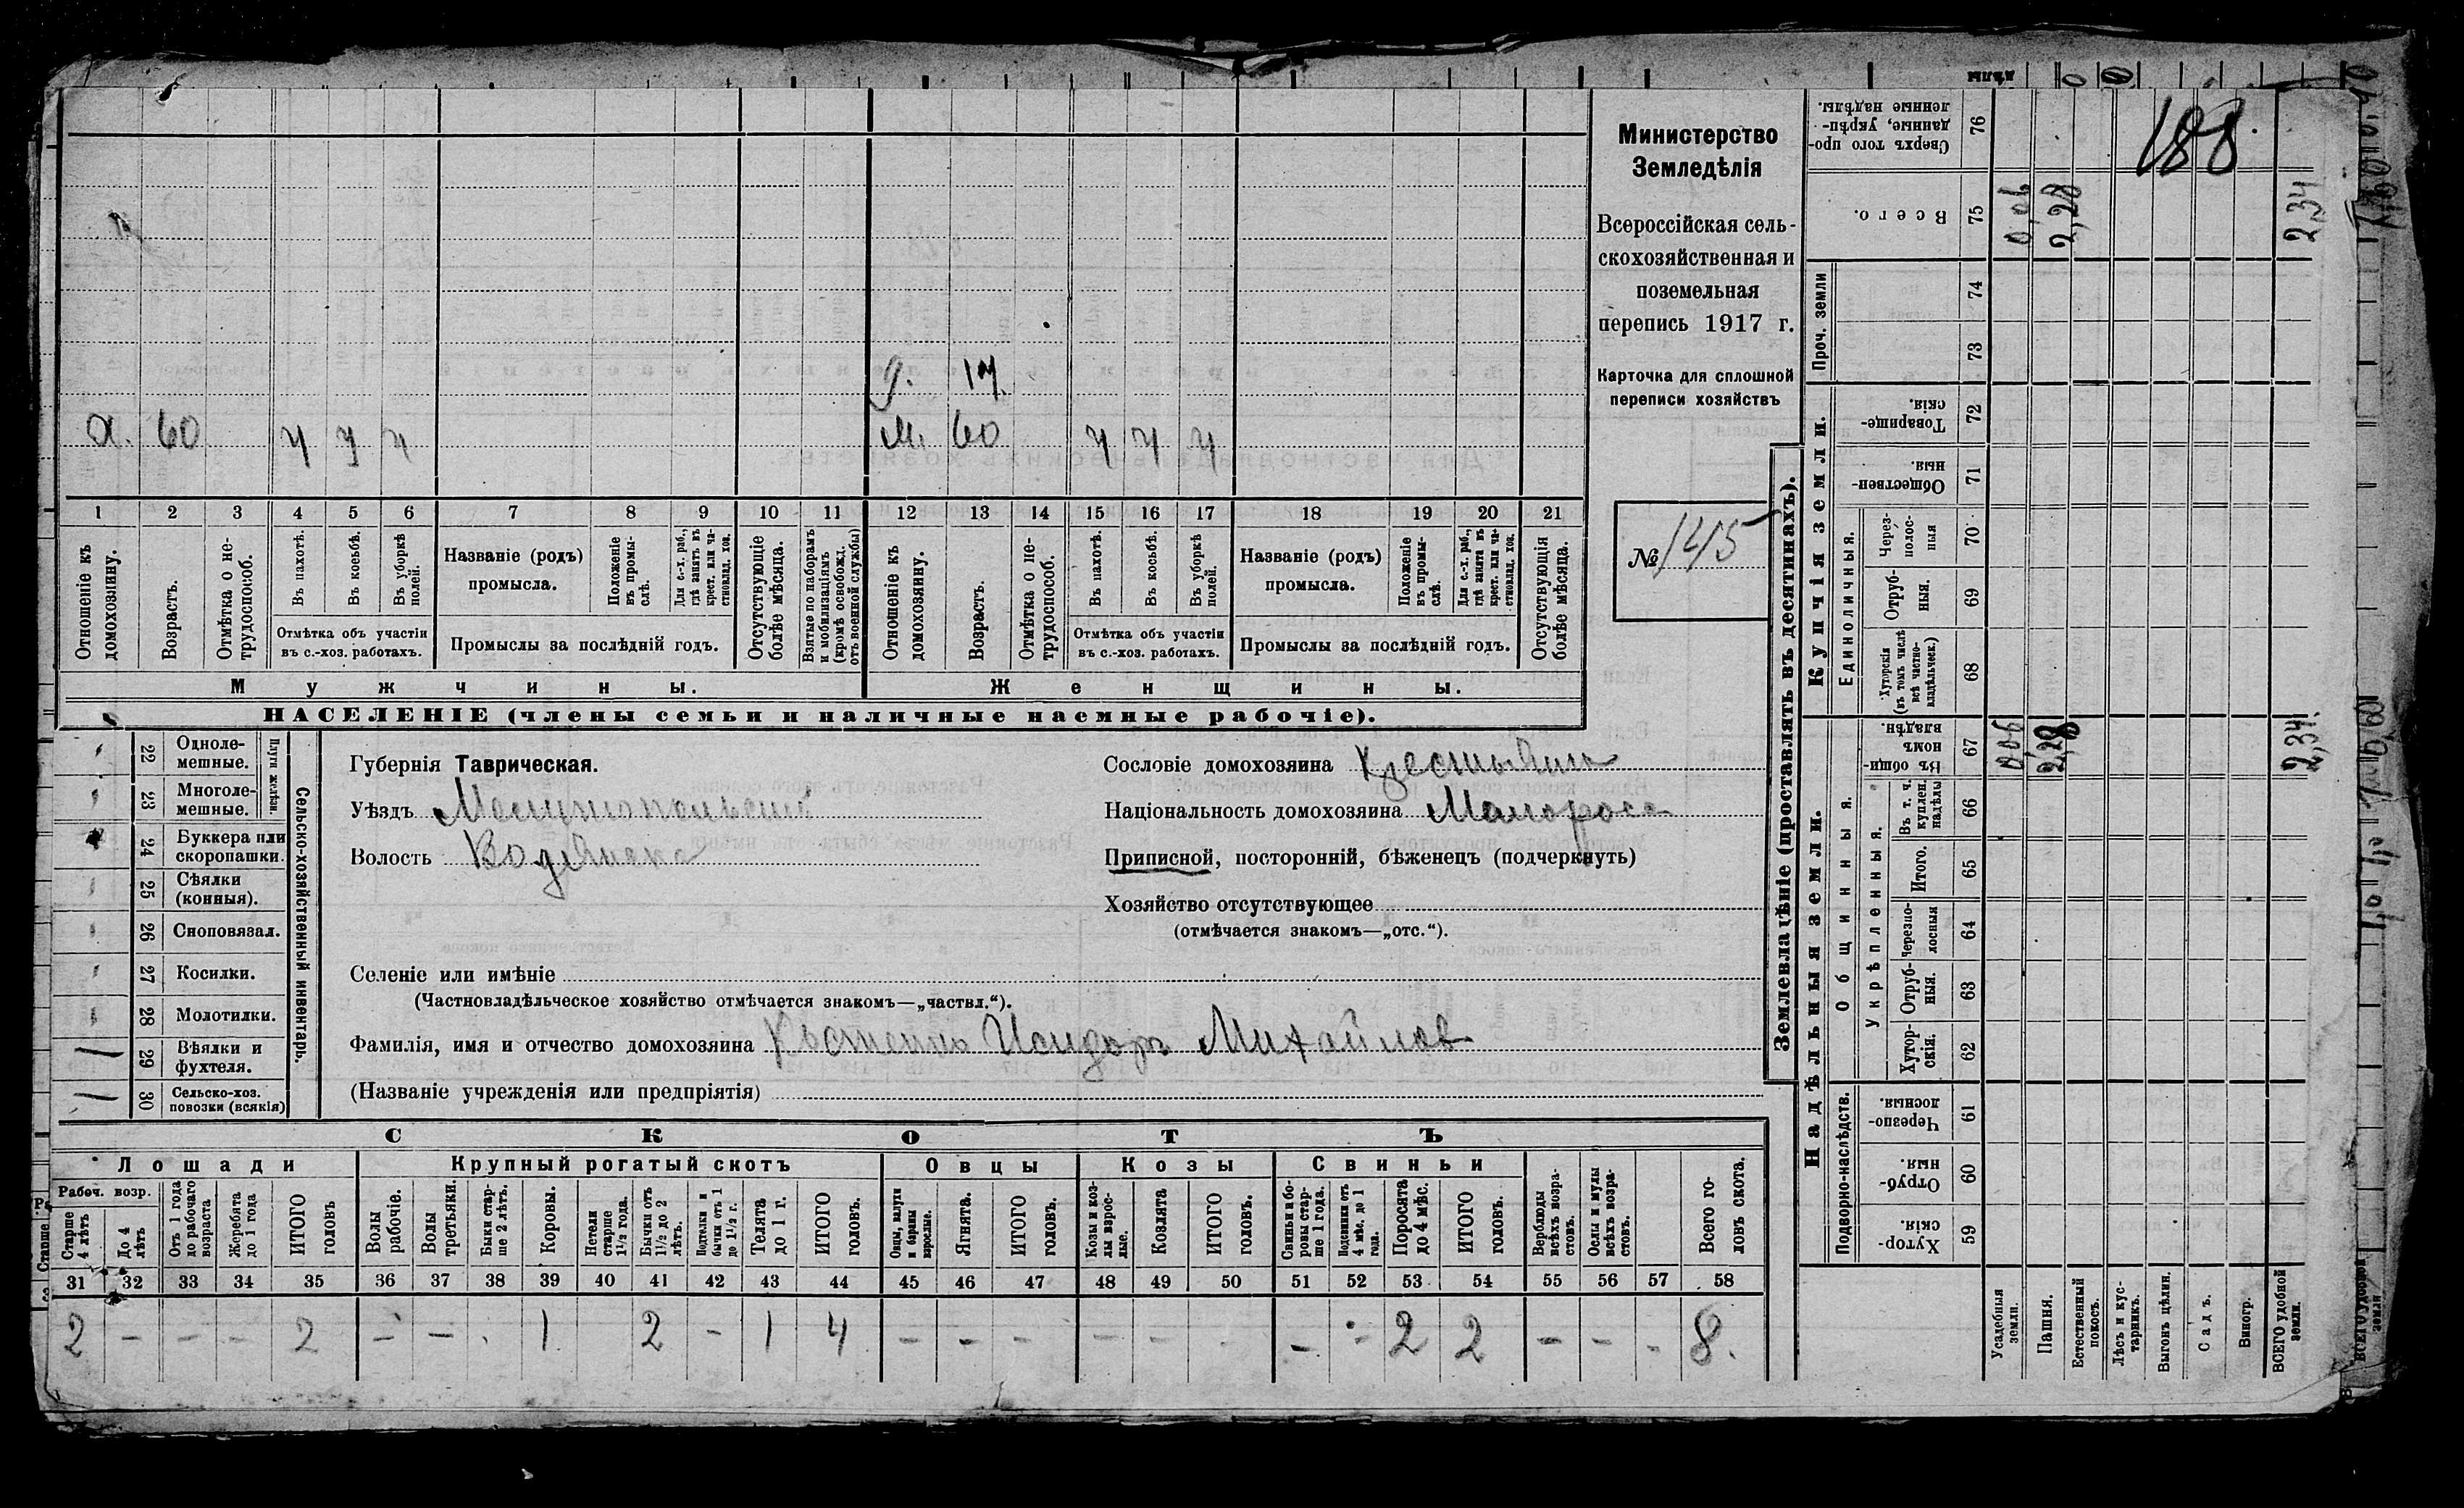 188
Министерство
Земледѣлія
Всероссійская сель-
скохозяйственная и
поземельная
перепись 1917 г.
Карточка для сплошной
переписи хозяйствъ
№ 145
д. 17.
х. 60 ч ч ч м. 60 ч ч ч
1 2 3 4 5 6 7 8 9 10 11 12 13 14 15 16 17 18 19 20 21
Отношеніе къ домохозяину.
Возрастъ.
Отмѣтка о не-трудоспособ.
Въ пахотѣ.
Въ косьбѣ.
Въ уборкѣ полей.
Отмѣтка объ участіи
въ с.-хоз. работахъ.
Названіе (родъ)
промысла.
Положеніе въ промы-слѣ.
Для с.-х. раб., гдѣ занятъ въ крест. или ча-стновлад. хоз.
Промыслы за послѣдній годъ.
Отсутствующіе болѣе мѣсяца.
Взятые по наборамъ и мобилизаціямъ (кромѣ освобожд. отъ военной службы)
Отношеніе къ домохозяину.
Возрастъ.
Отмѣтка о не-трудоспособ.
Въ пахотѣ.
Въ косьбѣ.
Въ уборкѣ полей.
Отмѣтка объ участіи
въ с.-хоз. работахъ.
Названіе (родъ)
промысла.
Положеніе въ промы-слѣ.
Для с.-х. раб., гдѣ занята въ крест. или ча-стновлад. хоз.
Промыслы за послѣдній годъ.
Отсутствующія болѣе мѣсяца.
Мужчины. Женщины.
НАСЕЛЕНІЕ (члены семьи и наличные наемные рабочіе).
Сельско-хозяйственный инвентарь.
Плуги желѣзн.
22 Одноле-мешные.
23 Многоле-мешные.
24 Буккера или скоропашки.
25 Сѣялки (конныя).
26 Сноповязал.
27 Косилки.
28 Молотилки.
29 Вѣялки и фухтеля.
30 Сельско-хоз. повозки (всякія)
Губернія Таврическая.
Уѣздъ Мелитопольскій
Волость Водянская
Сословіе домохозяина Крестьянинъ
Національность домохозяина Малоросъ
Приписной, посторонній, бѣженецъ (подчеркнуть)
Хозяйство отсутствующее
(отмѣчается знакомъ—„отс.“).
Селеніе или имѣніе
(Частновладѣльческое хозяйство отмѣчается знакомъ—„частвл.“).
Фамилія, имя и отчество домохозяина Костенко Исидоръ Михайлов
(Названіе учрежденія или предпріятія)
СКОТЪ
Лошади Крупный рогатый скотъ Овцы Козы Свиньи
Рабоч. возр.
Старше 4 лѣтъ
До 4 лѣтъ
Отъ 1 года до рабочаго возраста
Жеребята до 1 года
ИТОГО головъ
Волы рабочіе.
Волы третьяки.
Быки стар-ше 2 лѣтъ.
Коровы.
Нетели старше 1½ года.
Бычки отъ 1½ до 2 лѣтъ.
Подтелки и бычки отъ 1 до 1½ г.
Телята до 1 г.
ИТОГО головъ.
Овцы, валухи и бараны взрослые.
Ягнята.
ИТОГО головъ.
Козы и коз-лы взрос-лые.
Козлята
ИТОГО головъ.
Свиньи и бо-ровы стар-ше 1 года.
Подсвинки отъ 4 мѣс. до 1 года.
Поросята до 4 мѣс.
ИТОГО головъ.
Верблюды всѣхъ возра-стовъ.
Ослы и мулы всѣхъ возра-стовъ.
Всего го-ловъ скота.
31 32 33 34 35 36 37 38 39 40 41 42 43 44 45 46 47 48 49 50 51 52 53 54 55 56 57 58
2 – – – 2 – – . 1 2 – 1 4 – – – – – – – – 2 2 – – – 8.
Землевладѣніе (проставлять въ десятинахъ).
Купчія земли.
Проч. земли
Единоличныя.
Надѣльныя земли.
Общинныя.
Укрѣпленныя.
Подворно-наслѣдств.
76 Сверхъ того про-данные, укрѣп-ленные надѣлы.
75 Всего. 0,06 2,28 2,34
74
73
72 Товарище-скія.
71 Обществен-ныя.
70 Через-полос-ныя
69 Отруб-ныя.
68 Хуторскія (въ томъ числѣ всѣ частно-владѣльческ.)
67 Въ общин-номъ владѣн. 0,06 2,28 2,34
66 Въ т. ч. куплен. надѣлы
65 Итого.
64 Черезпо-лосныя
63 Отруб-ныя.
62 Хутор-скія.
61 Черезпо-лосныя.
60 Отруб-ныя.
59 Хутор-скія.
Усадебныя земли.
Пашня.
Естественный покосъ.
Лѣсъ и кус-тарникъ.
Выгонъ цѣлин.
Садъ.
Виногр.
ВСЕГО удобной земли.